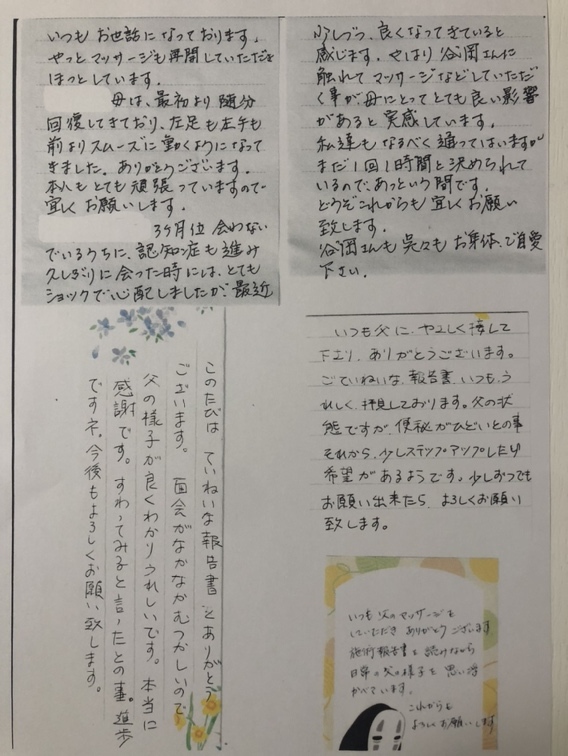 いつも お世話になっております。
やっとマッサージも再開していただき
ほっとしています。
母は、最初より随分
回復してきており、左足も左手も
前よりスムーズに動くようになって
きました。ありがとうございます。
本人もとても頑張っていますので
宜しくお願いします。
3ヶ月位会わない
でいるうちに、認知症も進み
久しぶりに会った時には、とても
ショックで心配しましたが、最近
少しづつ、良くなってきていると
感じます。やはり谷岡さんに
触れてマッサージなどしていただ
く事が、母にとってとても良い影響
があると実感しています。
私達もなるべく通ってはいますが
まだ1回1時間と決められて
いるので、あっという間です。
どうぞこれからも宜しくお願い
致します。
谷岡さんも呉々もお身体、ご自愛
下さい。
いつも父に、やさしく接して
下さり、ありがとうございます。
ごていねいな、報告書、いつも、う
れしく、拝見しております。父の状
態ですが、便秘がひどいとの事
それから、少しステップアップしたい
希望があるようです。少しずつでも
お願い出来たら、よろしくお願い
致します。
このたびは、ていねいな報告書、ありがとう
ございます。面会がなかなかむつかしいので
父の様子が良くわかりうれしいです。本当に
感謝です。すわってみると言ったとの事。進歩
ですネ。今後もよろしくお願い致します。
いつも父のマッサージを
していただき ありがとうございます。
施術報告書を読みながら
日常の父の様子を思い浮
かべています。
これからも
よろしくお願いします